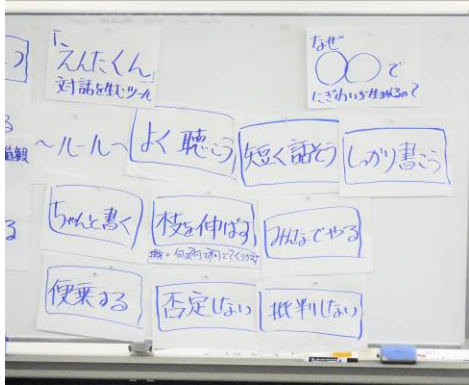 「えんたくん」
対話を生むツール
なぜ
○○で
にぎわいが生まれるの?
～ルール～
よく聴こう
短く話そう
しっかり書こう
ちゃんと書く
枝を伸ばす
みんなでやる
便乗する
否定しない
批判しない